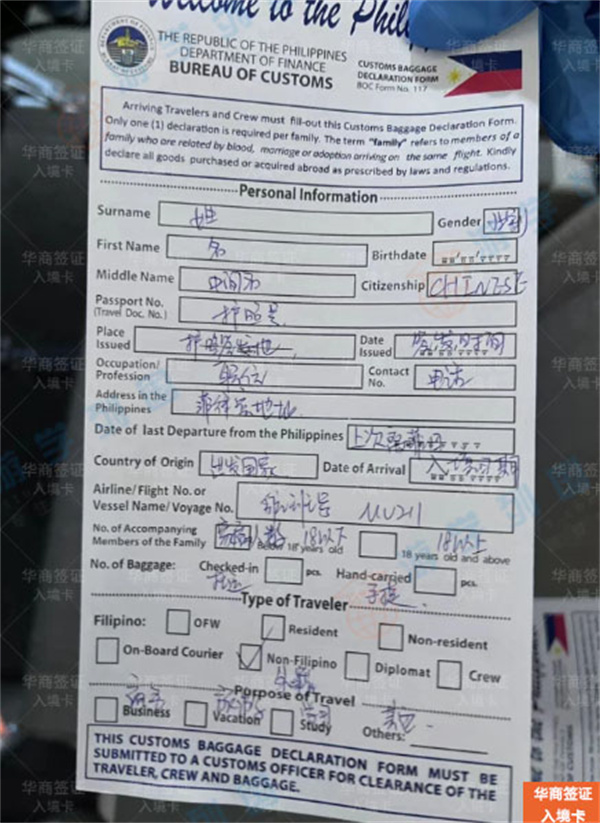 Welcome to the Philipp
THE REPUBLIC OF THE PHILIPPINES
DEPARTMENT OF FINANCE
BUREAU OF CUSTOMS
CUSTOMS BAGGAGE
DECLARATION FORM
BOC Form No. 117
Arriving Travelers and Crew must fill-out this Customs Baggage Declaration Form.
Only one (1) declaration is required per family. The term "family" refers to members of a
family who are related by blood, marriage or adoption arriving on the same flight. Kindly
declare all goods purchased or acquired abroad as prescribed by laws and regulations.
Personal Information
Surname 姓 Gender 性别
First Name 名 Birthdate
Middle Name 中间名 Citizenship CHINESE
Passport No. 护照号
(Travel Doc. No.)
Place Issued 护照签发地 Date Issued 签发时间
Occupation/ Profession 职位 Contact No. 电话
Address in the Philippines 菲律宾地址
Date of last Departure from the Philippines 上次
Country of Origin 出发国家 Date of Arrival 入境日期
Airline/Flight No. or
Vessel Name/ Voyage No. 航班号 MU211
No. of Accompanying
Members of the Family 家庭人数 18以下 Below 18 years old 18以上 18 years old and above
No. of Baggage: Checked-in pcs. Hand-carried pcs.
托运 手提
Type of Traveler
Filipino: OFW Resident Non-resident
On-Board Courier Non-Filipino Diplomat Crew
Purpose of Travel
Business Vacation Study Others:
THIS CUSTOMS BAGGAGE DECLARATION FORM MUST BE
SUBMITTED TO A CUSTOMS OFFICER FOR CLEARANCE OF THE
TRAVELER, CREW AND BAGGAGE.
华商签证
入境卡